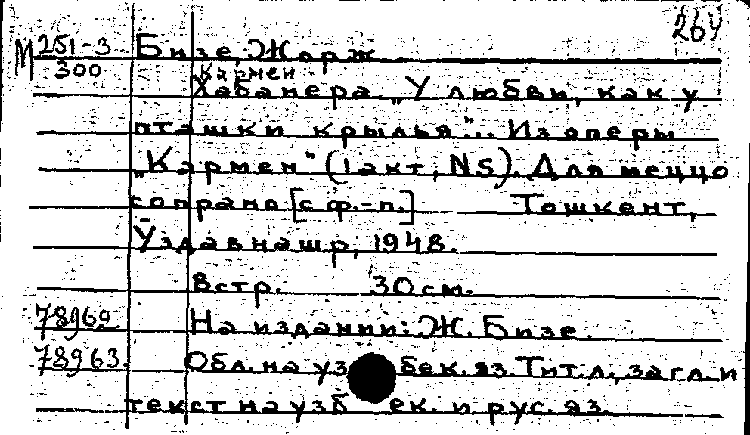 264
М 251-3 Бизе, Жорж
300 Кармен
Хабанера „У любви, как у
пташки крылья"... Из оперы
„Кармен" (1 акт, N5). Для меццо
сопрано [с ф.-п.] Тошкент,
Ўздавнашр, 1948.
8 стр. 30 см.
78962 На издании: Ж. Бизе.
78963. Обл. на узбек. яз. Тит. л., загл. и
текст на узбек. и рус. яз.